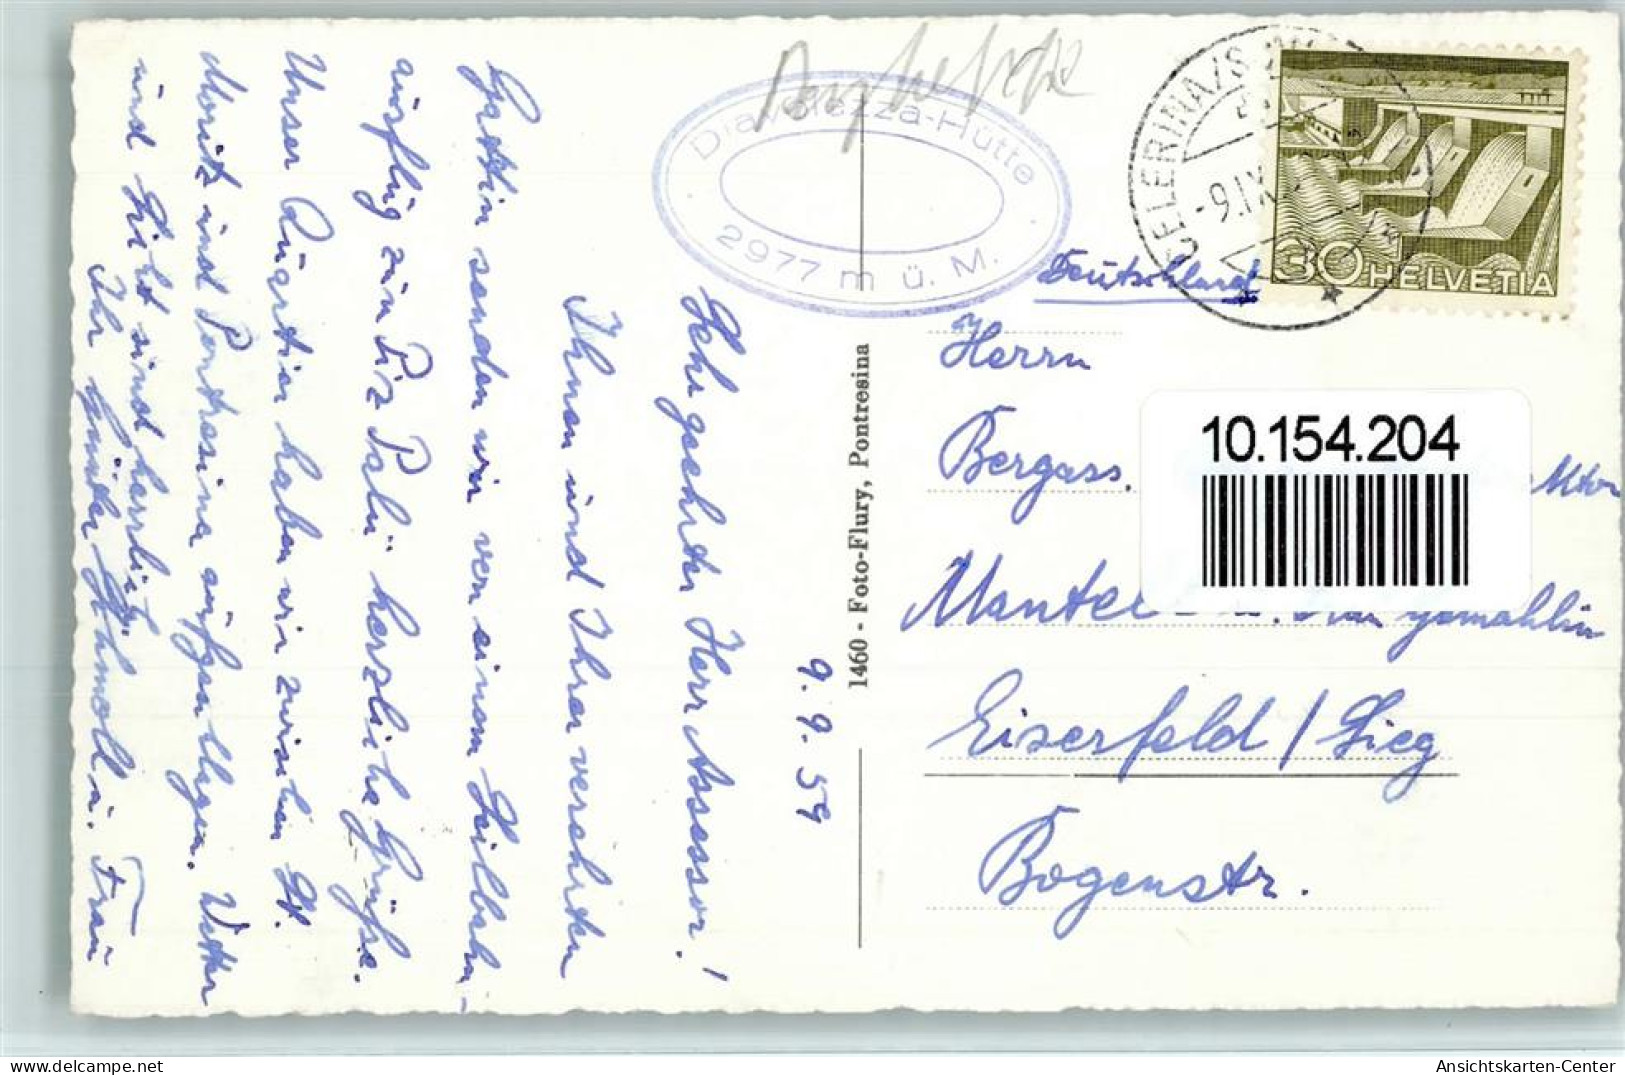 9. 9. 59
Sehr geehrter Herr Assessor!
Ihnen und Ihrer verehrten
Gattin senden wir von einem Seilbahn-
ausflug zum Piz Palü herzliche Grüsse.
Unser Quartier haben wir zwischen St.
Moritz und Pontresina aufgeschlagen. Wetter
und Sicht sind herrlich.
Ihr Günter Schmoll u. Frau
Diavolezza-Hütte
2977 m ü. M.
1460 - Foto-Flury, Pontresina
CELERINA/S
-9.IX
30 HELVETIA
Deutschland
Herrn
Bergass.
10.154.204
Mantel u. Frau gemahlin
Eiserfeld / Sieg
Bogenstr.
Ansichtskarten-Center